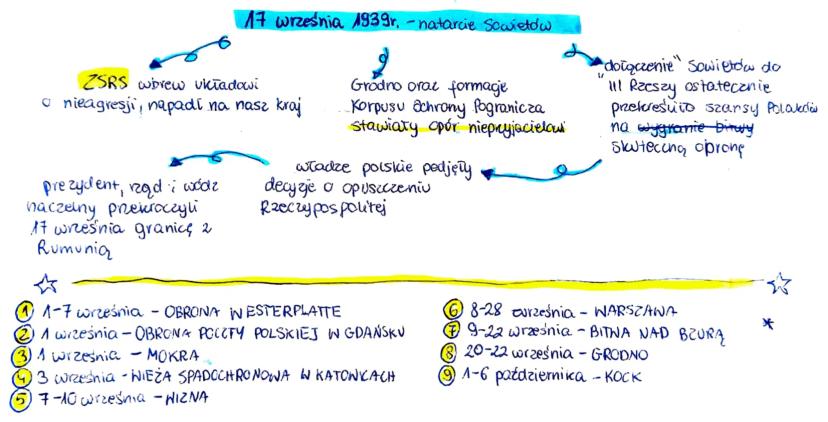 17 września 1939r. - natarcie Sowietów
ZSRS wbrew układowi
o nieagresji, napadł na nasz kraj
Grodno oraz formacje
Korpusu Ochrony Pogranicza
stawiały opór nieprzyjacielowi
"dołączenie" Sowietów do
III Rzeszy ostatecznie
przekreśliło szansy Polaków
na wygranie bitwy
skuteczną obronę
władze polskie podjęły
decyzje o opuszczeniu
Rzeczypospolitej
prezydent, rząd i wódz
naczelny przekroczyli
17 września granicę z
Rumunią
1 1-7 września - OBRONA WESTERPLATTE
2 1 września - OBRONA POCZTY POLSKIEJ W GDAŃSKU
3 1 września - MOKRA
4 3 września - WIEŻA SPADOCHRONOWA W KATOWICACH
5 7-10 września - WIZNA
6 8-28 września - WARSZAWA
7 9-22 września - BITWA NAD BZURĄ *
8 20-22 września - GRODNO
9 1-6 października - KOCK